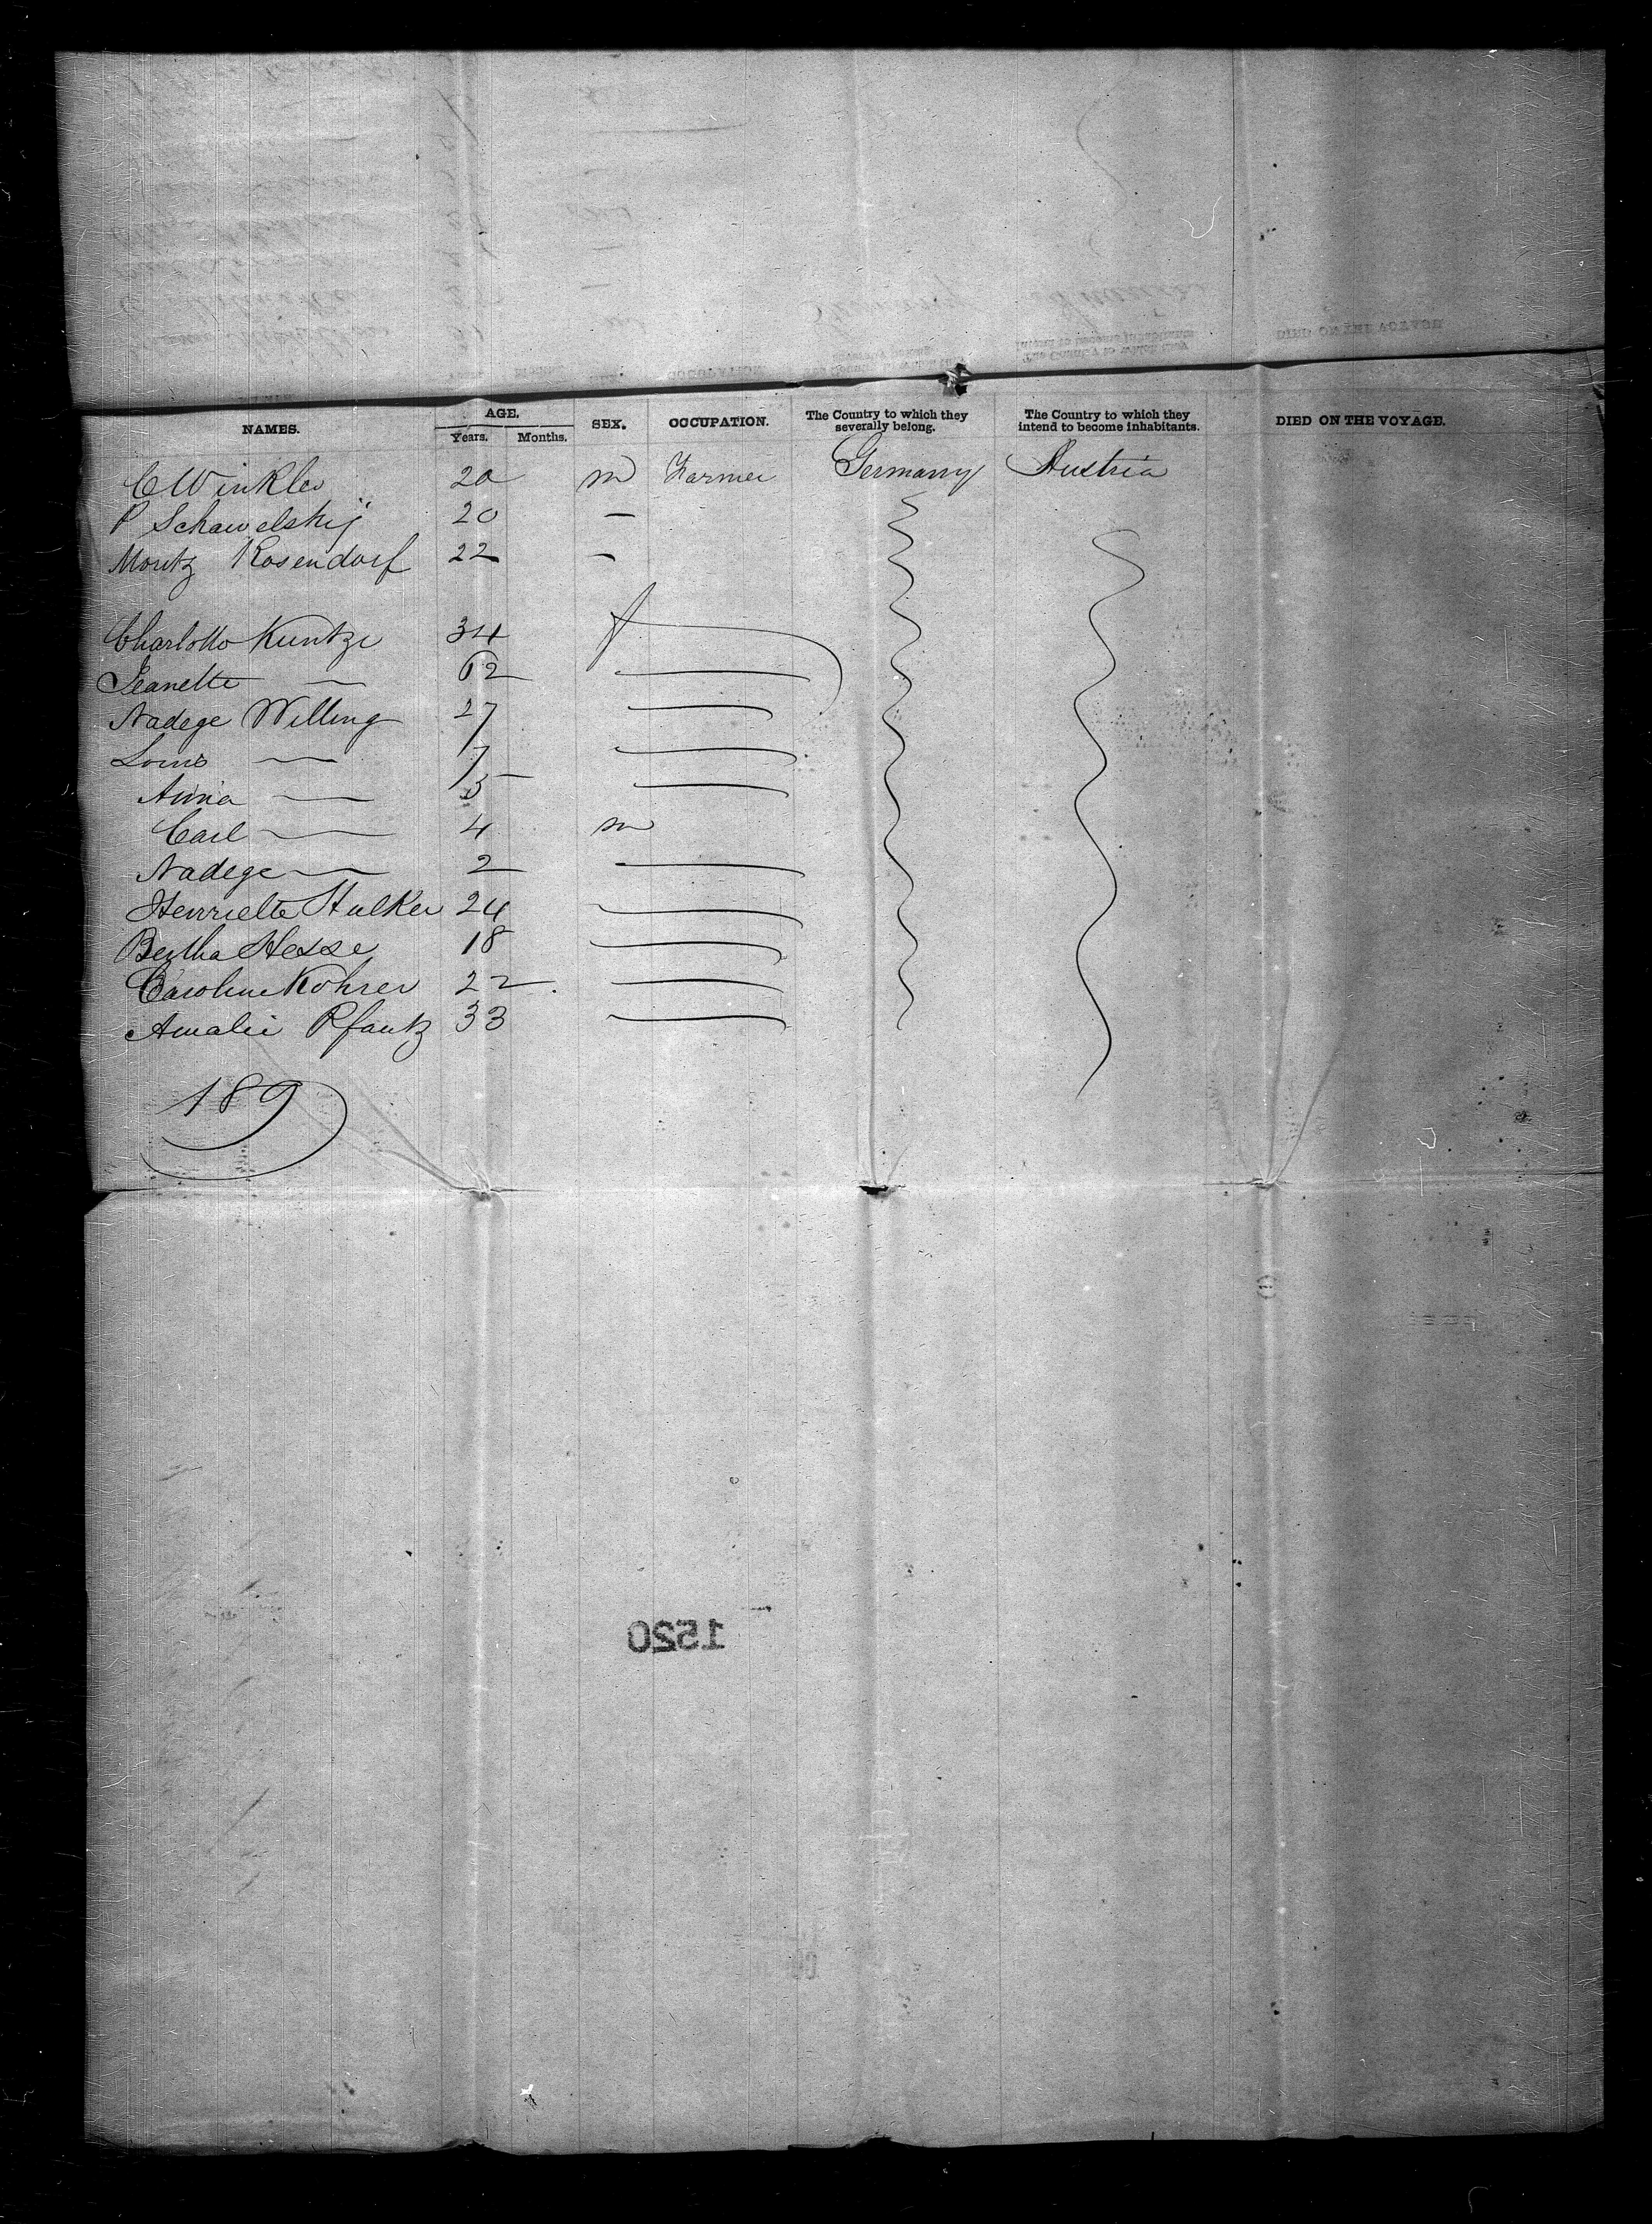 NAMES. AGE. SEX. OCCUPATION. The Country to which they severally belong. The Country to which they intend to become inhabitants. DIED ON THE VOYAGE.
Years. Months.
C Winkler 20 m Farmer Germany Austria
P Schawelskij 20 —
Moritz Rosendorf 22 —
Charlotte Kuntze 34 f
Jeanette — 62 —
Nadege Willing 27 —
Louis — 7 —
Anna — 5 —
Carl — 4 m
Nadege — 2 —
Henriette Stulker 24 —
Bertha Hesse 18 —
Caroline Kohrer 22 —
Amalie Pfantz 33 —
189
1520